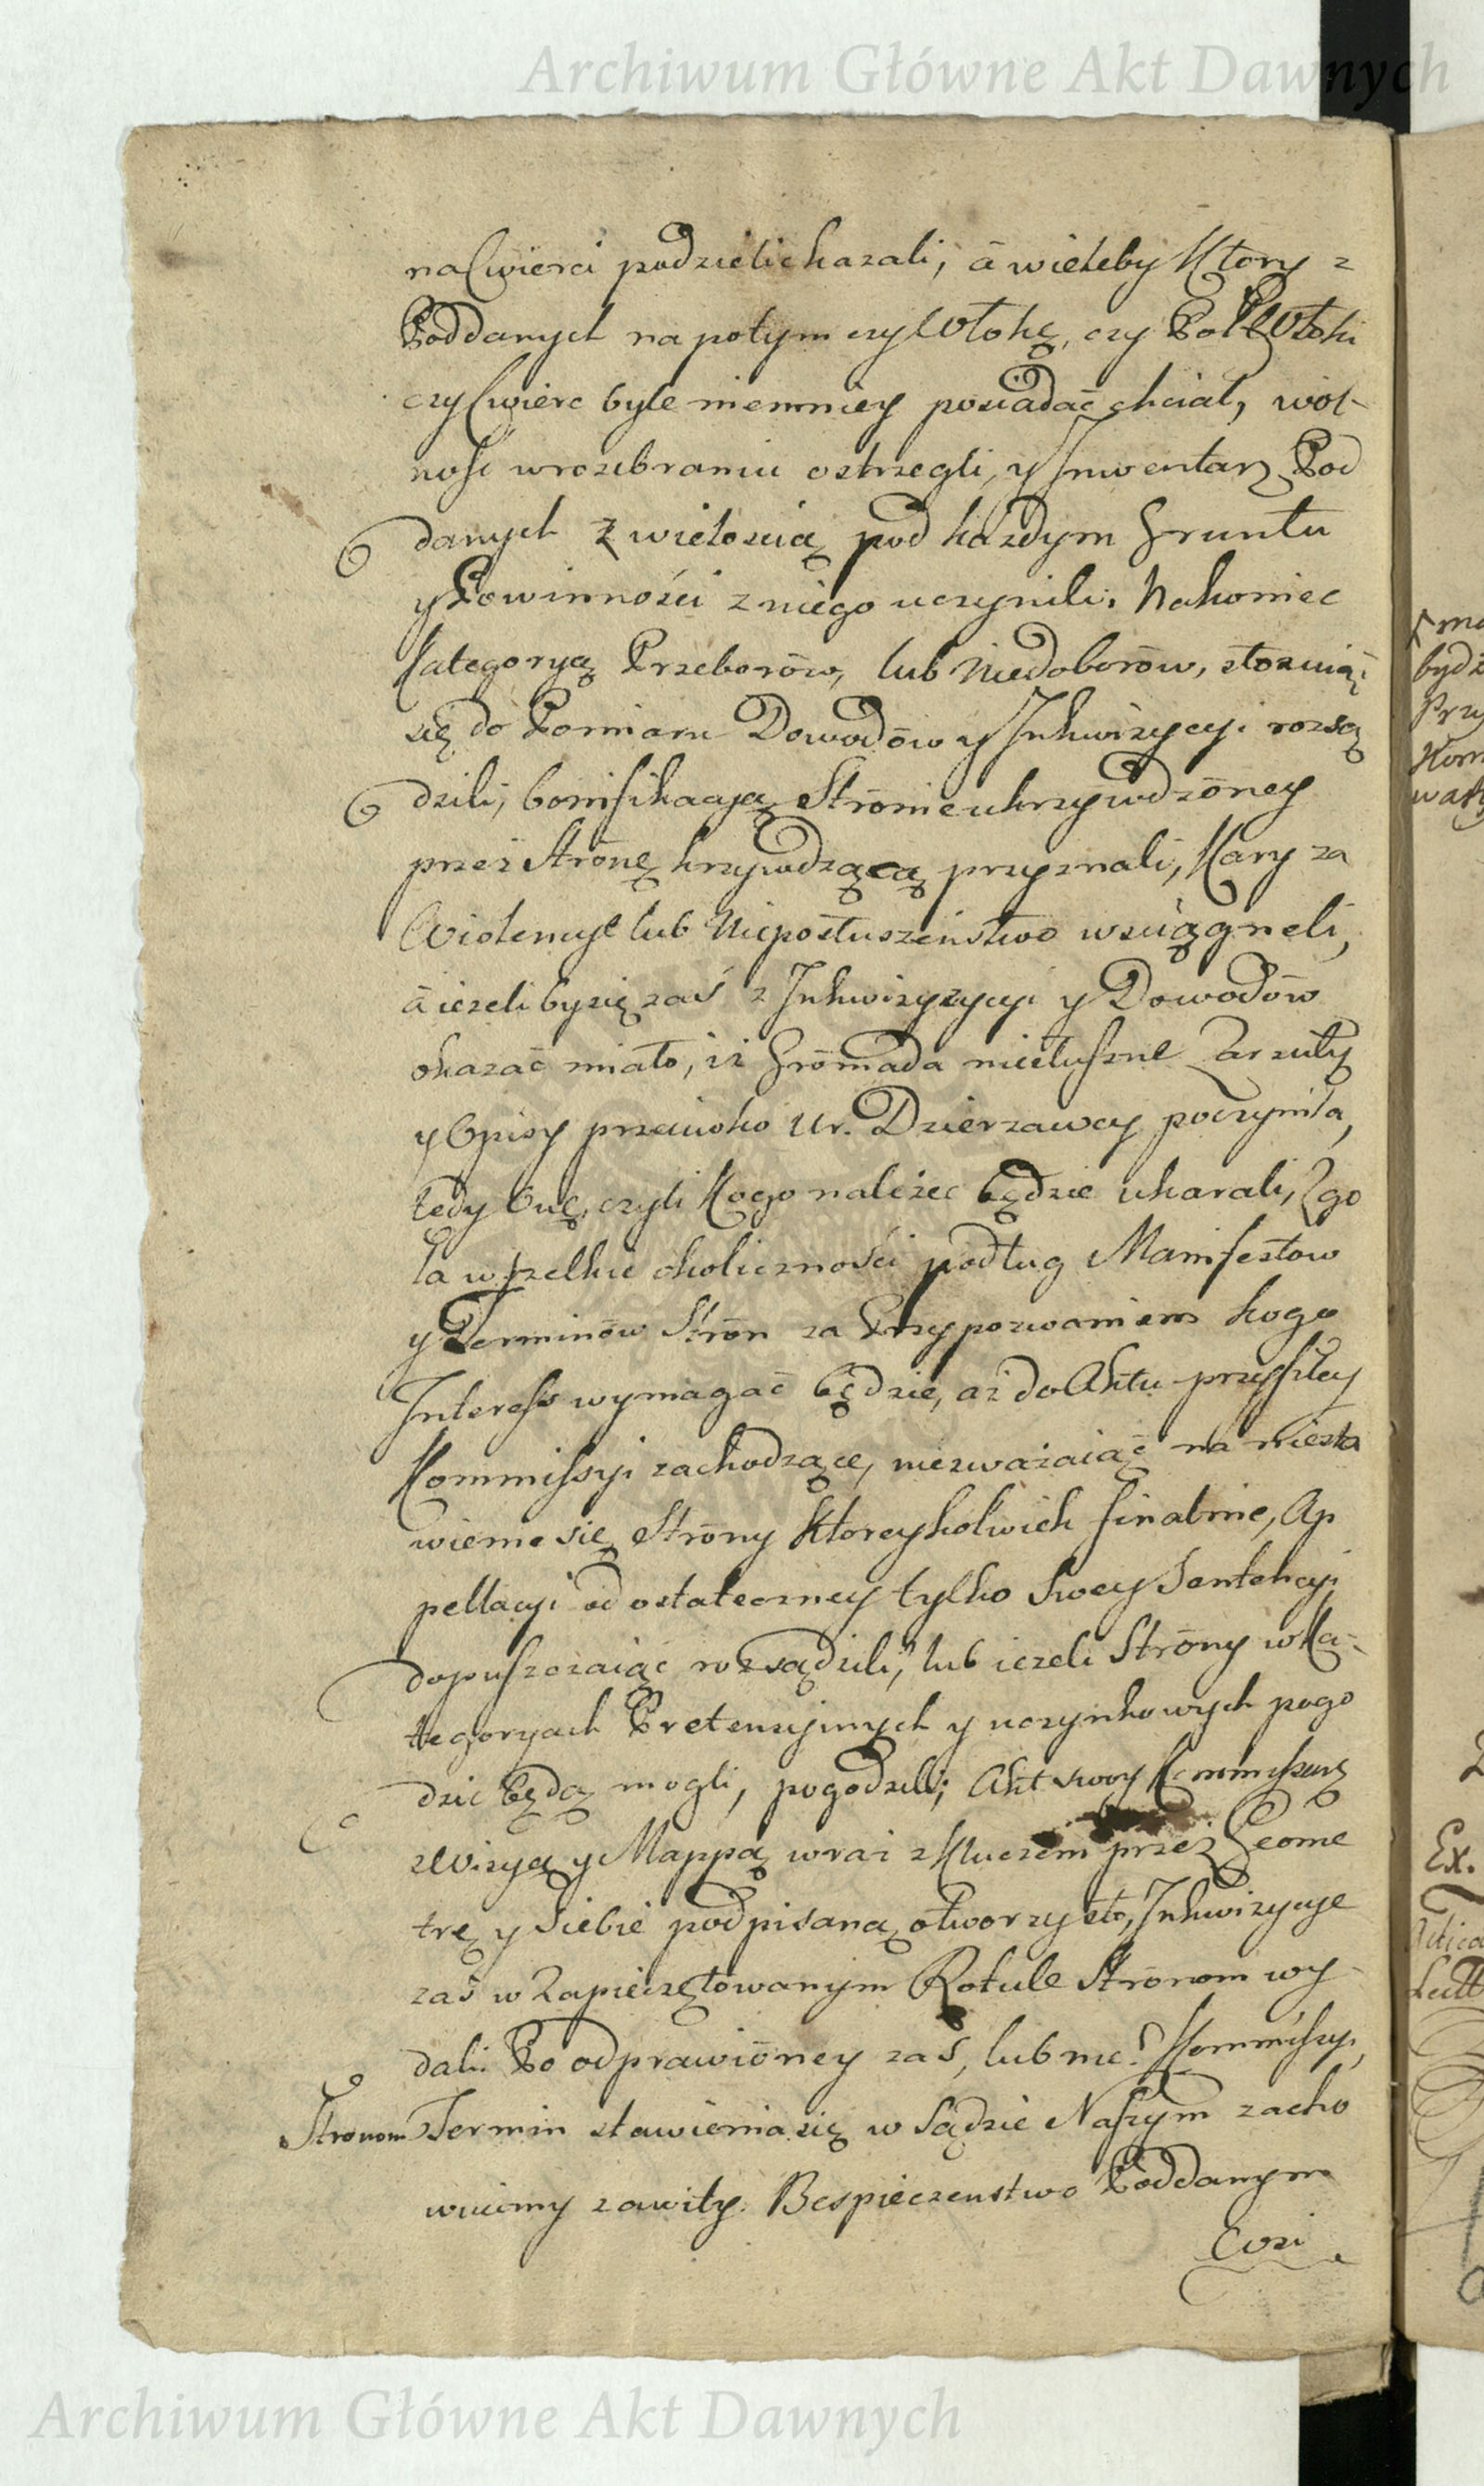 Archiwum Główne Akt Dawnych
na Cwierci podzielić kazali, á wieleby Ktory z
Poddanych na potym czy Włokę, czy Poł Włoki
czy Cwierc byle niemniey posiadać chciał, wol-
nosc w rozebraniu ostrzegli, y Inwentarz Pod
danych z wielością pod każdym Gruntu
y Powinności z niego uczynili. Nakoniec
Kategoryą Przeborów, lub Niedoborów, stosuiąc
się do Pomiaru Dowodów y Inkwizycyi rozsą
dzili, bonifikacyą Stronie ukrzywdzóney
przez Strónę krzywdzącą przyznali, Kary za
Wiolencye lub Nieposłuszeństwo wsciągneli,
á ieżeliby się zaś z Inkwizyzycyi y Dowodów
okazać miało, iż Grómada niesłuszne Zarzuty
y Opisy przeciwko Ur. Dzierzawcy poczyniła,
tedy Onę, czyli Kogo należeć będzie ukarali, Zgo
ła wszelkie okoliczności podług Manifestow
y Terminów Strón za Przypozwaniem kogo
Interess wymagać będzie, aż do Aktu przyszłey
Kommissyi zachodzące, niezważaiąc na niesta
wienie się Stróny Ktoreykolwiek finalnie, Ap
pellacyi od ostateczney tylko swey Sentencyi
dopuszczaiąc rozsądzili, lub ieżeli Stróny w Ka-
tegoryach Pretensyinych y uczynkowych pogo
dzić będą mogli, pogodzili; Akt swoy Kommissarz
z Wizyą y Mappą wraz z Kluczem przez Geome
trę y Siebie podpisaną otworzysto, Inkwizycye
zaś w Zapieczętowanym Rotule Strónom wy-
dali. Po odprawióney zaś, lub nie? Kommissyi,
Stronom Termin stawienia się w Sądzie Naszym zacho
wuiemy zawity. Bespieczenstwo Poddanym
Ex.
Archiwum Główne Akt Dawnych